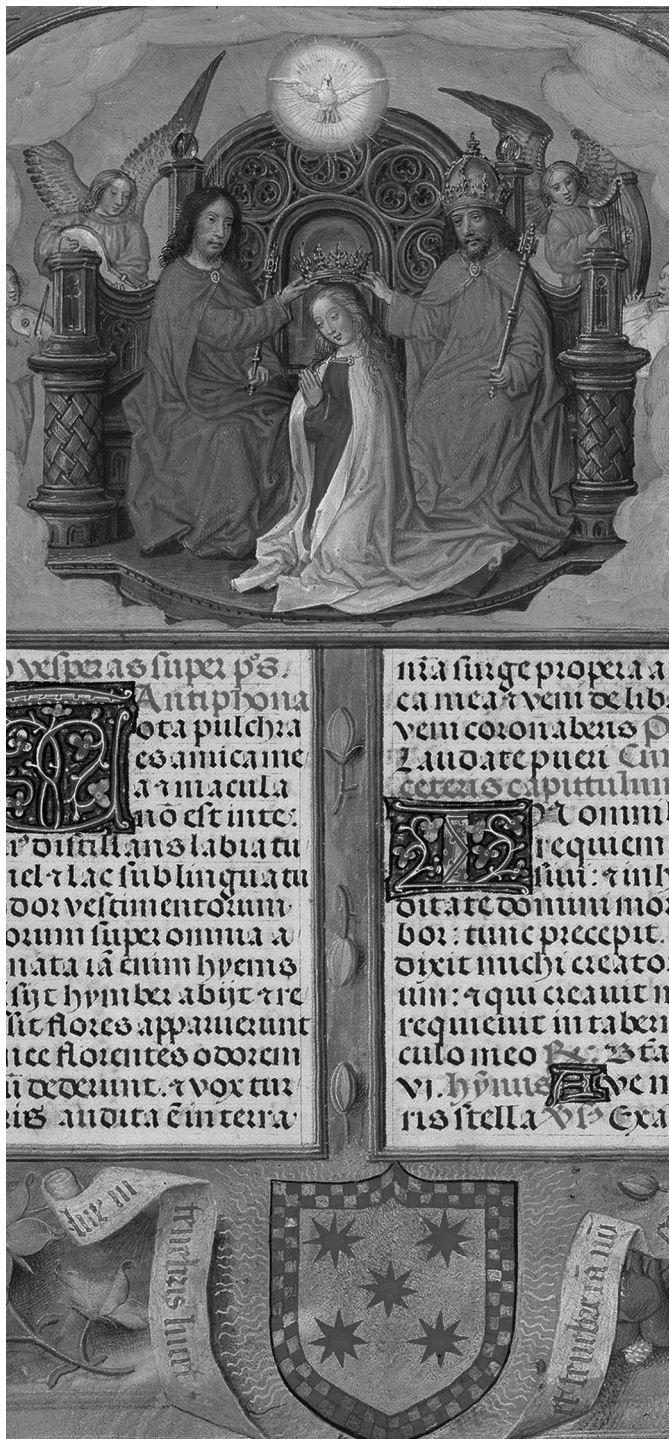 vesperas super ps.
Antiphona
Tota pulchra
es amica me
a ⁊ macula
nō est in te:
distillans labia tu
mel ⁊ lac sub lingua tu
odor vestimentorum
orum super omnia a
mata iā enim hyems
sijt hymber abijt ⁊ re
sit flores apparuerunt
nee florentes odorem
dederunt. ⁊ vox tur
ris audita ē in terra
nr̄a surge propera a
ca mea ⁊ veni de lib
veni coronaberis P
Laudate pueri Cum
ceteris capittulum
IN omni
requiem
siui: ⁊ in h
ditate domini mor
bor: tunc precepit
dixit michi creato
um: ⁊ qui creauit m
requieuit in taberi
culo meo R: Bta
vi. hȳnus Aue m
ris stella Exa
hic in
tenebris lucet